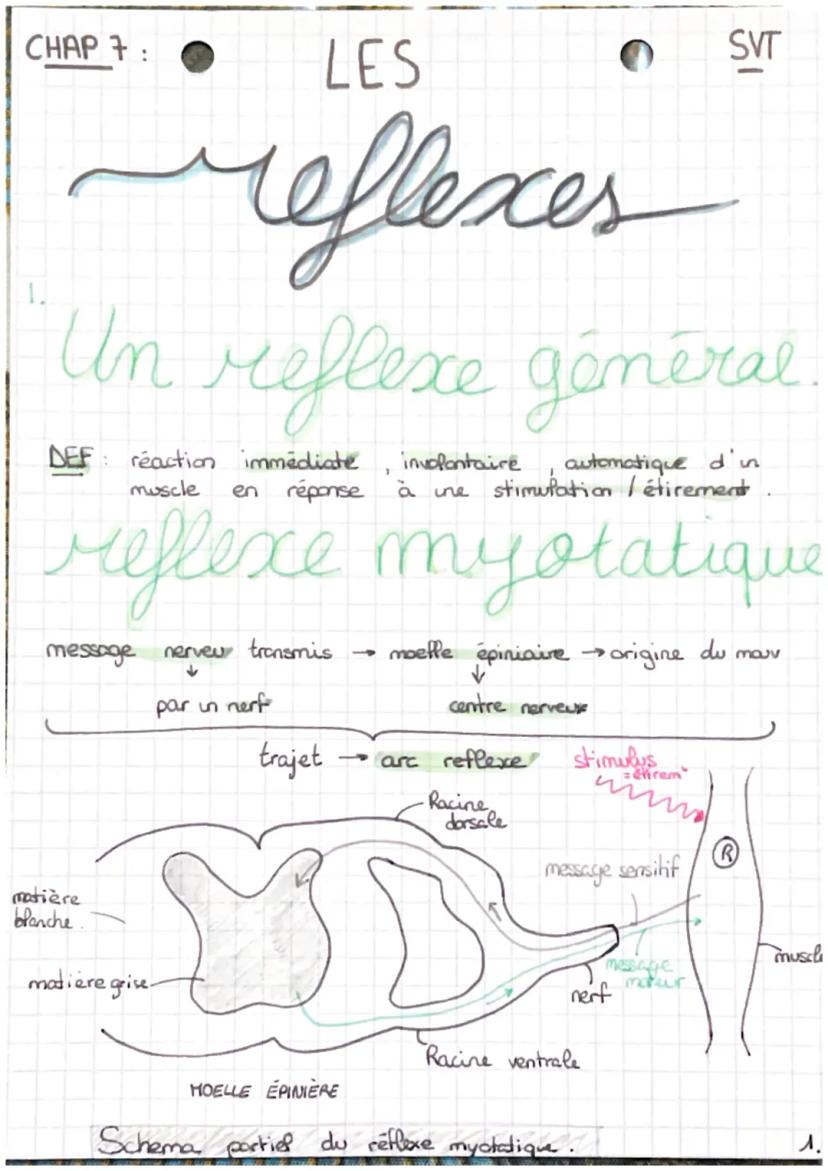 CHAP 7 : LES SVT
reflexes
1.
Un reflexe général.
DEF : réaction immédiate, involontaire, automatique d'un
muscle en réponse à une stimulation / étirement.
reflexe myotatique
message nerveu transmis → moelle épiniaire → origine du mouv
par un nerf centre nerveux
trajet → arc reflexe
stimulus
= étirem^t
Racine
dorsale
R
message sensitif
matière
blanche.
message
moteur
muscle
matière grise
nerf
Racine ventrale
MOELLE ÉPINIÈRE
Schema partiel du réflexe myotatique.
1.